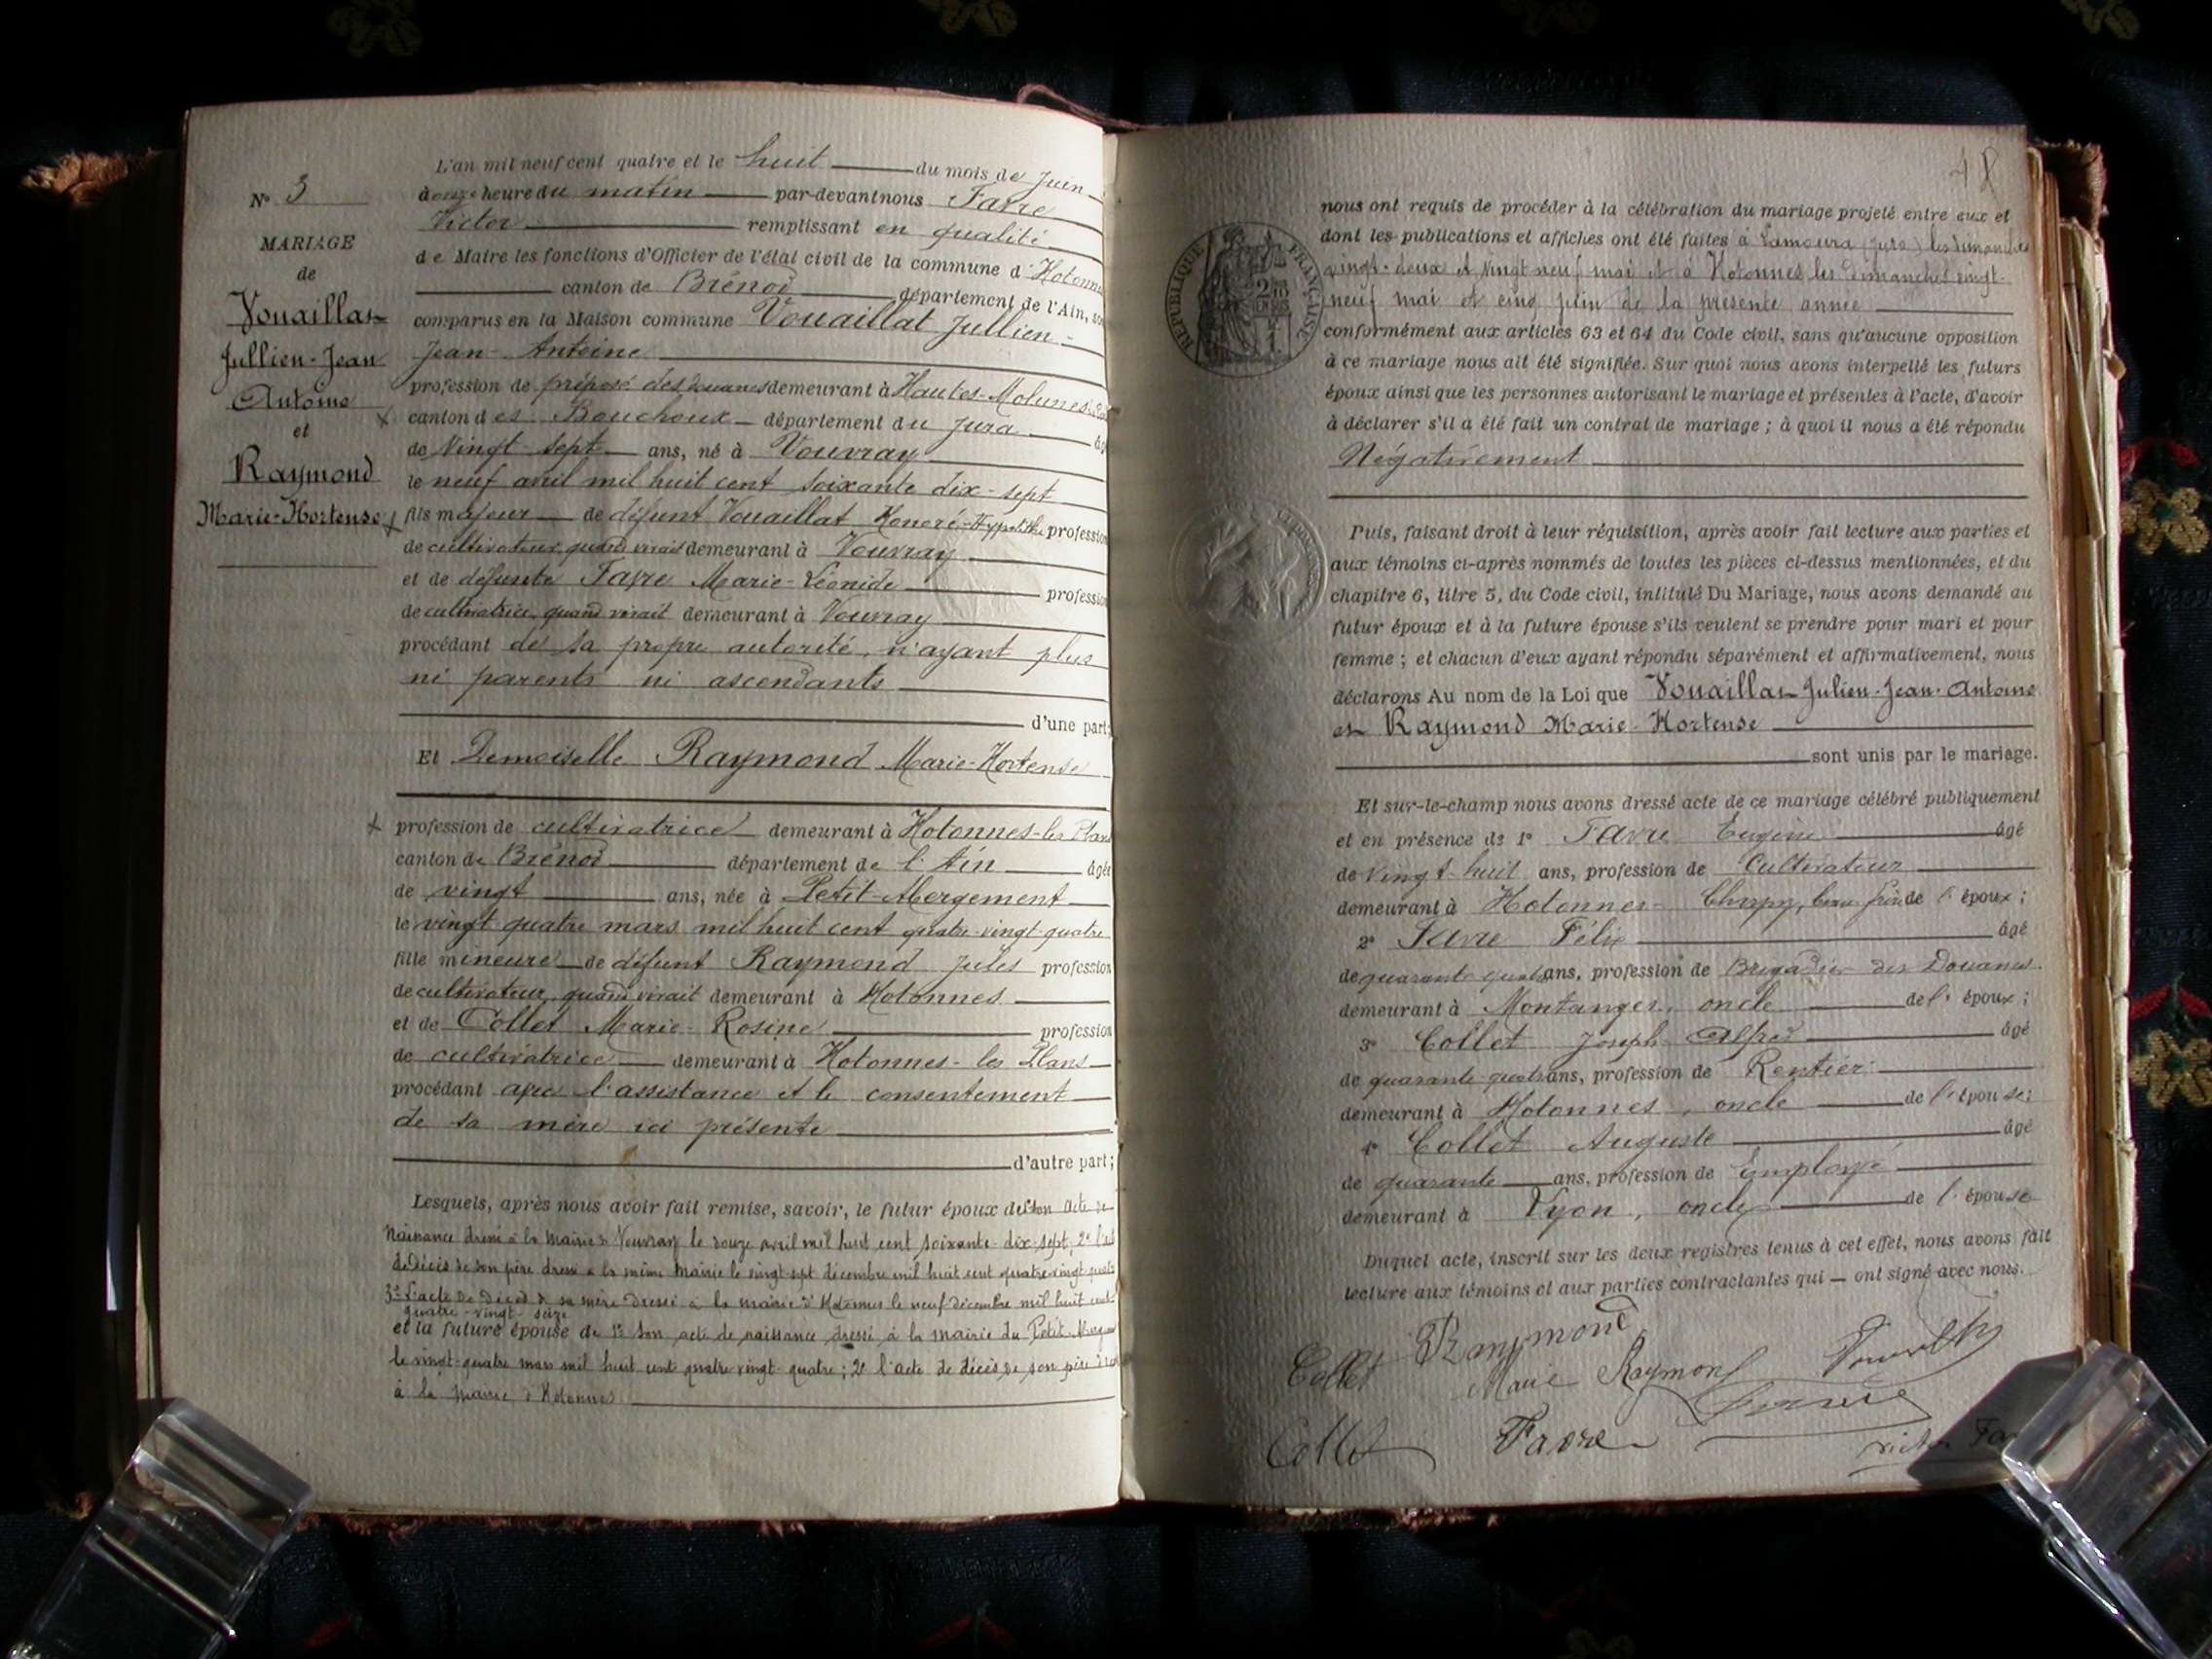 N° 3
MARIAGE
de
Vouaillat
Jullien-Jean
Antoine
et
Raymond
Marie-Hortense
L'an mil neuf cent quatre et le huit du mois de Juin
à onze heure du matin par-devant nous Favre
Victor remplissant en qualité
de Maire les fonctions d'Officier de l'état civil de la commune d'Hotonnes
canton de Brénod département de l'Ain, sont
comparus en la Maison commune Vouaillat Jullien-
Jean-Antoine
profession de préposé des douanes demeurant à Hautes-Molunes
canton des Bouchoux département du Jura âgé
de Vingt sept ans, né à Vouvray
le neuf avril mil huit cent soixante dix-sept
fils majeur de défunt Vouaillat Honoré-Hyppolithe profession
de cultivateur, quand vivait demeurant à Vouvray
et de défunte Favre Marie-Léonide profession
de cultivatrice, quand vivait demeurant à Vouvray
procédant de sa propre autorité, n'ayant plus
ni parents ni ascendants
d'une part;
Et Demoiselle Raymond Marie-Hortense
profession de cultivatrice demeurant à Hotonnes-les Plans
canton de Brénod département de l'Ain âgée
de vingt ans, née à Petit-Abergement
le vingt quatre mars mil huit cent quatre-vingt quatre
fille mineure de défunt Raymond Jules profession
de cultivateur, quand vivait demeurant à Hotonnes
et de Collet Marie-Rosine profession
de cultivatrice demeurant à Hotonnes-les Plans
procédant avec l'assistance et le consentement
de sa mère ici présente
d'autre part;
Lesquels, après nous avoir fait remise, savoir, le futur époux de son acte de
Naissance dressé à la mairie de Vouvray le douze avril mil huit cent soixante-dix-sept, 2° l'acte
de décès de son père dressé à la même Mairie le vingt-sept décembre mil huit cent quatre-vingt
3° L'acte de décès de sa mère dressé à la mairie d'Hotonnes le neuf décembre mil huit cent
quatre-vingt-seize
et la future épouse de 1° son acte de naissance dressé à la mairie du Petit-Abergement
le vingt-quatre mars mil huit cent quatre vingt-quatre; 2° l'acte de décès de son père dressé
à la mairie d'Hotonnes
48
RÉPUBLIQUE FRANÇAISE
nous ont requis de procéder à la célébration du mariage projeté entre eux et
dont les publications et affiches ont été faites à Lamoura (Jura) les dimanches
vingt-deux et vingt neuf mai et à Hotonnes les dimanches vingt-
neuf mai et cinq juin de la présente année
conformément aux articles 63 et 64 du Code civil, sans qu'aucune opposition
à ce mariage nous ait été signifiée. Sur quoi nous avons interpellé les futurs
époux ainsi que les personnes autorisant le mariage et présentes à l'acte, d'avoir
à déclarer s'il a été fait un contrat de mariage; à quoi il nous a été répondu
Négativement
Puis, faisant droit à leur réquisition, après avoir fait lecture aux parties et
aux témoins ci-après nommés de toutes les pièces ci-dessus mentionnées, et du
chapitre 6, titre 5, du Code civil, intitulé Du Mariage, nous avons demandé au
futur époux et à la future épouse s'ils veulent se prendre pour mari et pour
femme; et chacun d'eux ayant répondu séparément et affirmativement, nous
déclarons Au nom de la Loi que Vouaillat Julien-Jean-Antoine
et Raymond Marie-Hortense
sont unis par le mariage.
Et sur-le-champ nous avons dressé acte de ce mariage célébré publiquement
et en présence de 1° Favre Eugène âgé
de Vingt-huit ans, profession de Cultivateur
demeurant à Hotonnes- beau frère de l'époux;
2° Favre Félix âgé
de quarante quatre ans, profession de Brigadier des Douanes
demeurant à Montanges, oncle de l'époux;
3° Collet Joseph Alfred âgé
de quarante-quatre ans, profession de Rentier
demeurant à Hotonnes, oncle de l'épouse;
4° Collet Auguste âgé
de quarante ans, profession de Employé
demeurant à Lyon, oncle de l'épouse
Duquel acte, inscrit sur les deux registres tenus à cet effet, nous avons fait
lecture aux témoins et aux parties contractantes qui — ont signé avec nous.
Collet Raymond
Marie Raymond
Collet Favre